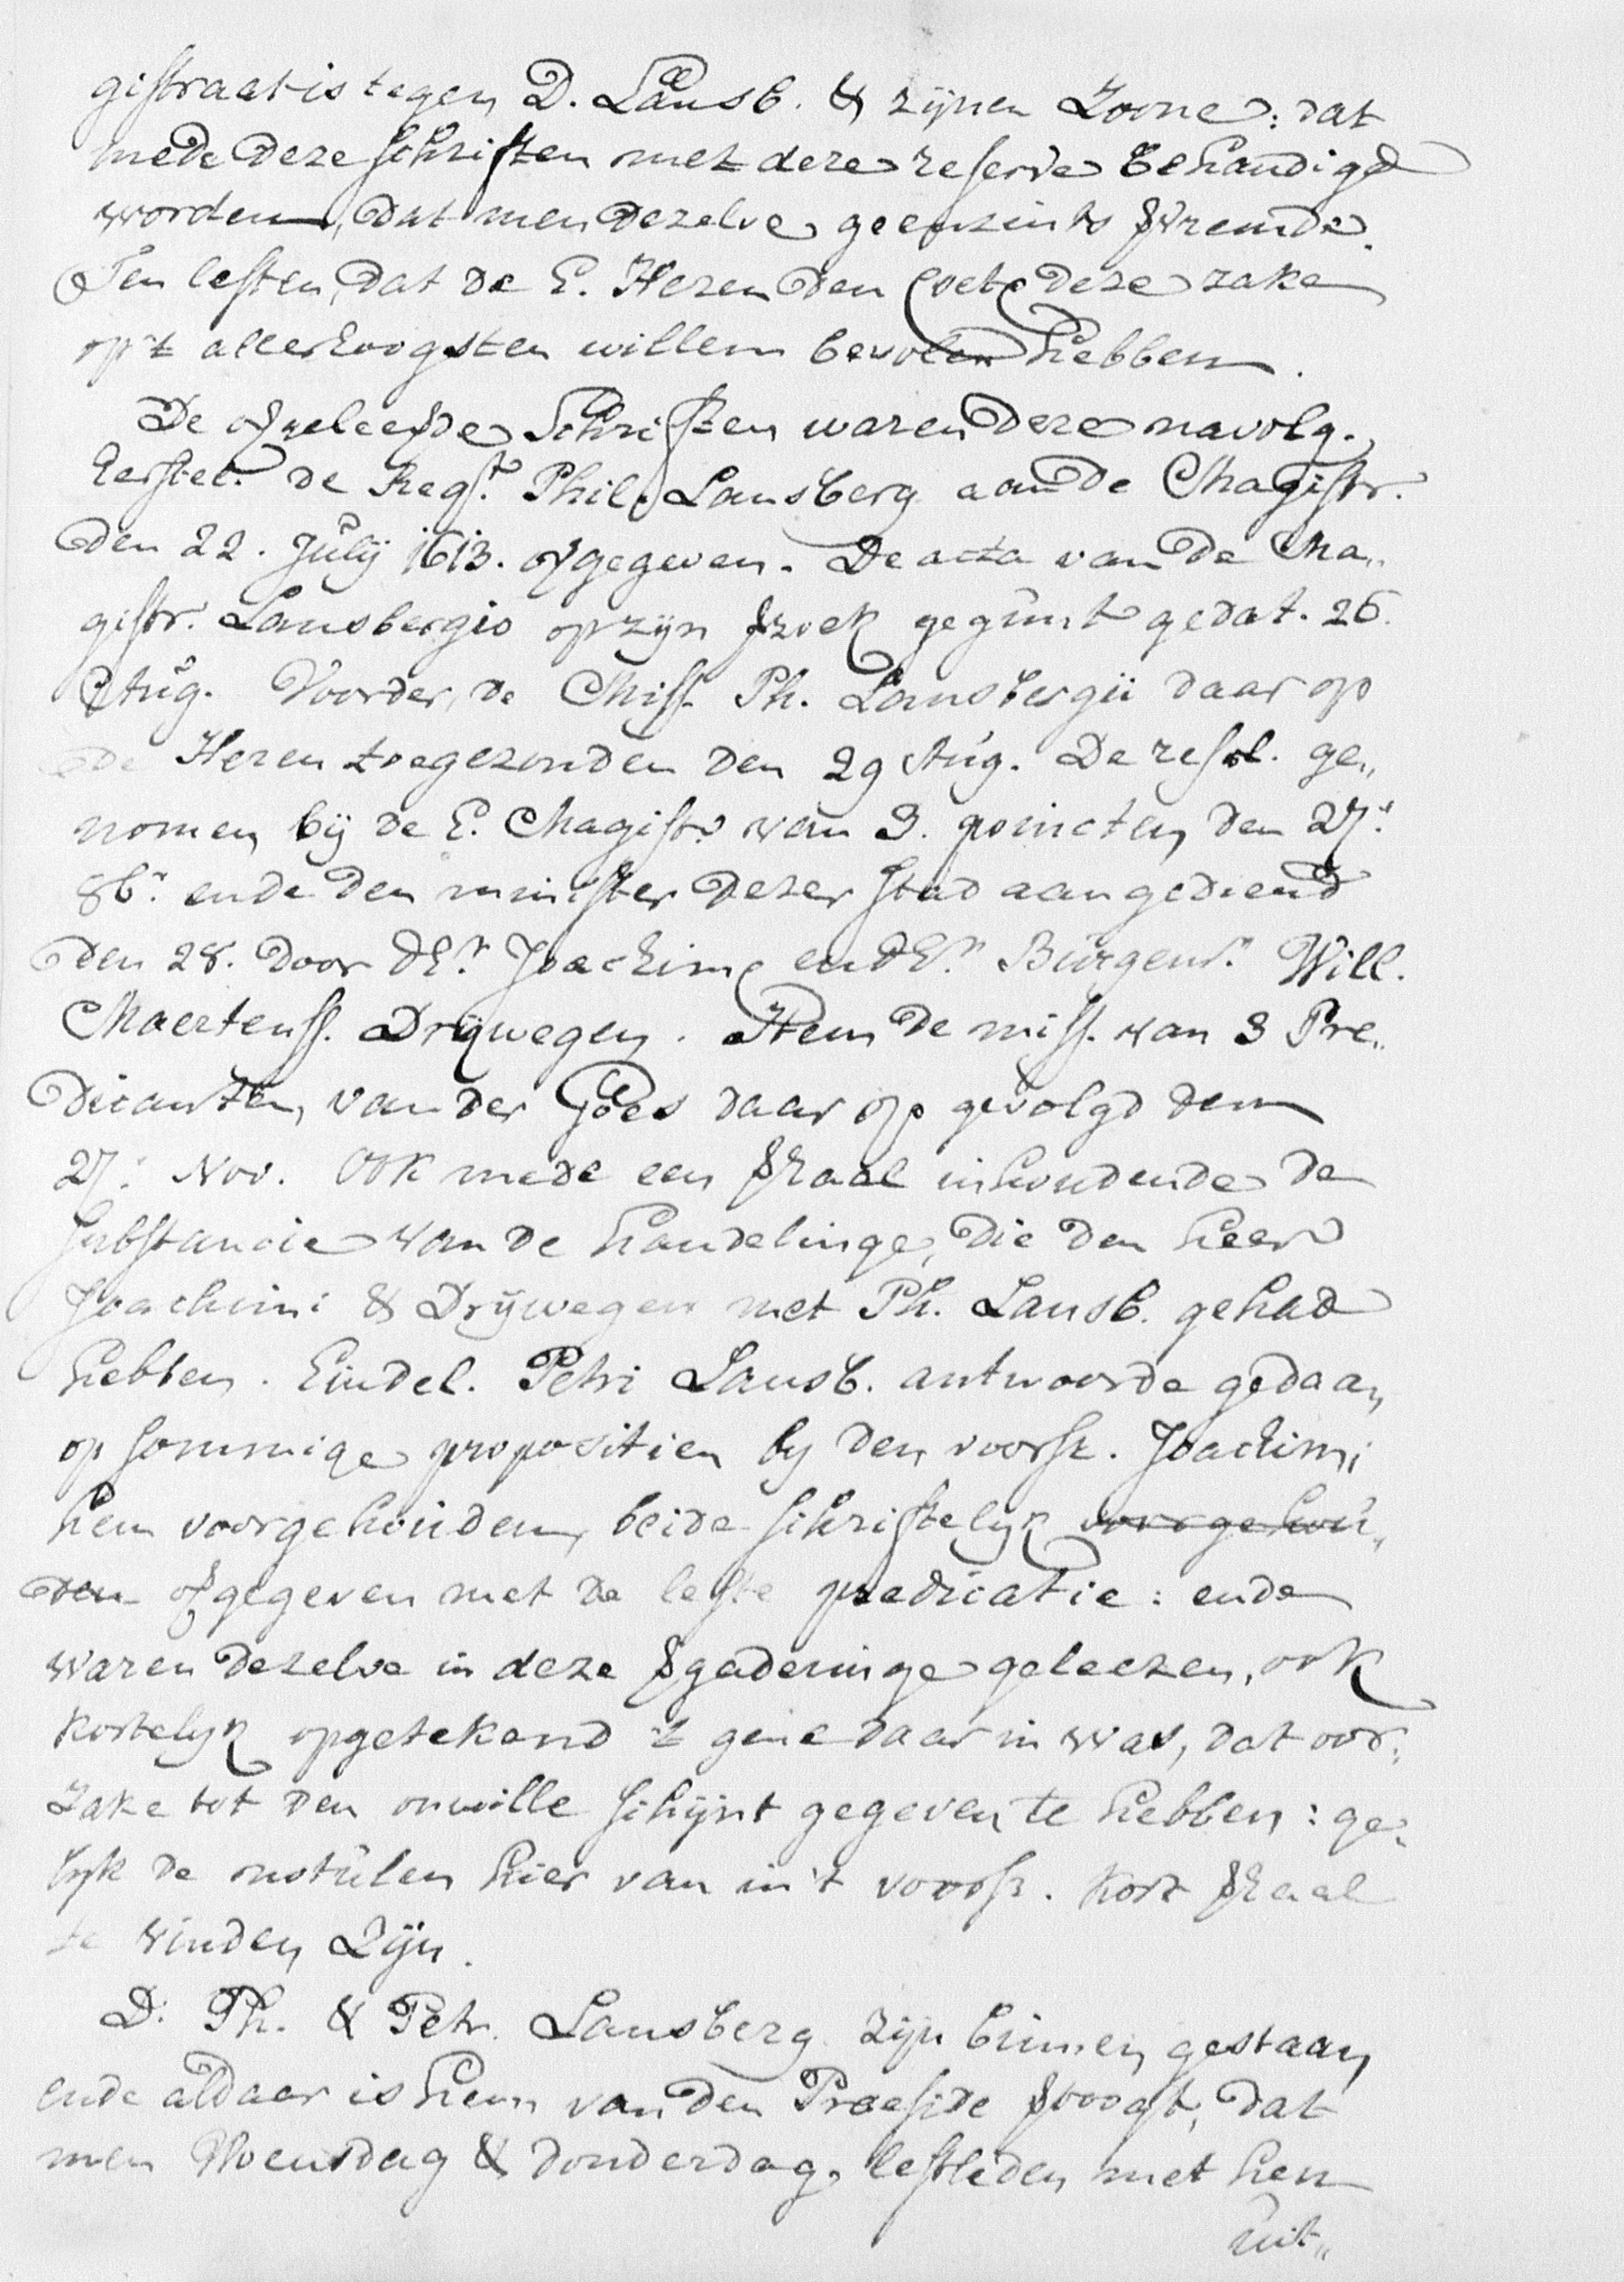 gistraat is tegen D. Lansb. & zijnen Zoone: dat
mede deze schriften met deze reserve behandigd
worden, dat men dezelve geenzints vreemde.
Ten lesten, dat de E. Heren den Coetg deze zake
op't allerhoogsten willen bevolen hebben.
De ofgeleesde Schriften waren deze navolg.
Eerstel. de Reqst. Phil. Lansberg aan de Magistr.
den 22. Julij 1613. ofgegeven. De acta van de Ma„
gistr. Lansbergio op zijn vzoek gegunt gedat. 26.
Aug. Voorder, de Miss. Ph. Lansbergii daar op
de Heren toegezonden den 29 Aug. De resol. ge„
nomen bij de E. Magistr. van 3. poincten den 27.
8br. ende den minister dezer stad aangediend
den 28. door dHr. Joachimi en dHr. Burgemr. Will.
Maertenss. Drijwegen. Item de miss. van 3 Pre„
dicanten, van der Goes daar op gevolgd den
27. Nov. Ook mede een vhaal inhoudende de
substancie van de handelinge, die den heer
Joachimi & Drijwegen met Ph. Lansb. gehad
hebben. Eindel. Petri Lansb. antwoorde gedaan
op sommige propositien by den voorsz. Joachimi
hem voorgehouden, beide schriftelijk voorgehou„
den ofgegeven met de leste predicatie: ende
waren dezelve in deze vgaderinge geleezen, ook
kortelijk opgetekend 't gene daar in was, dat oor„
zake tot den onwille schijnt gegeven te hebben: ge„
lijk de notulen hier van in 't voorsz. kort vhaal
te vinden zijn.
D. Ph. & Petr. Lansberg zijn binnen gestaan
ende aldaar is hem van den Praeside vtoogt, dat
men Woensdag & donderdag lestleden met hen
uit„